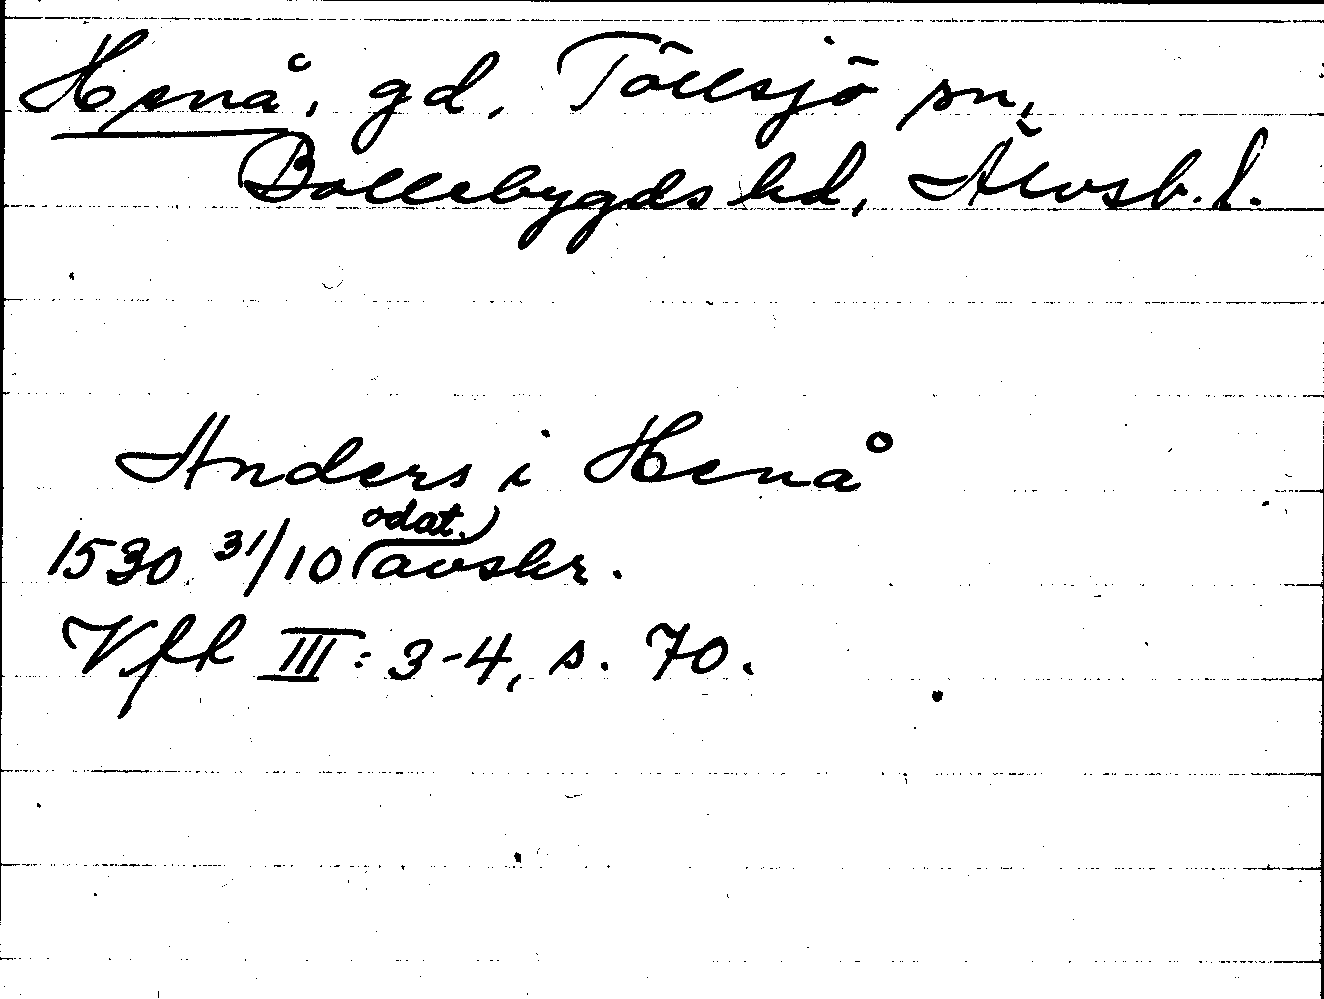 Henå, gd, Töllsjö sn,
Bollebygds hd, Älvsb. l.
Anders i Henå
1530 31/10 (odat.) avskr.
Vfh III: 3-4, s. 70.